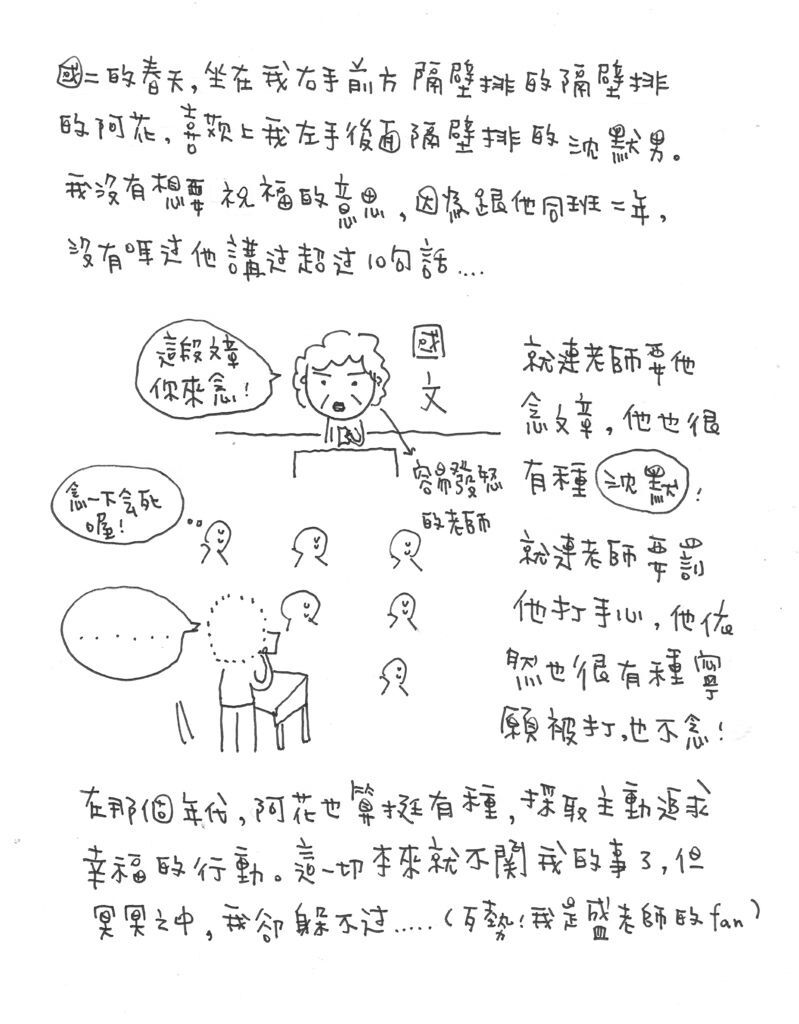 國二的春天,坐在我右手前方隔壁排的隔壁排
的阿花,喜欢上我左手後面隔壁排的沈默男。
我沒有想要祝福的意思,因為跟他同班二年,
沒有听过他講过超过10句話....
這段文章
你來念!
國
文
容易發怒
的老師
念一下会死
喔!
.......
就連老師要他
念文章,他也很
有種沈默!
就連老師要罰
他打手心,他依
然也很有種寧
願被打,也不念!
在那個年代,阿花也算挺有種,採取主動追求
幸福的行動。這一切本來就不關我的事了,但
冥冥之中,我卻躲不过.....(歹勢!我是盛老師的fan)